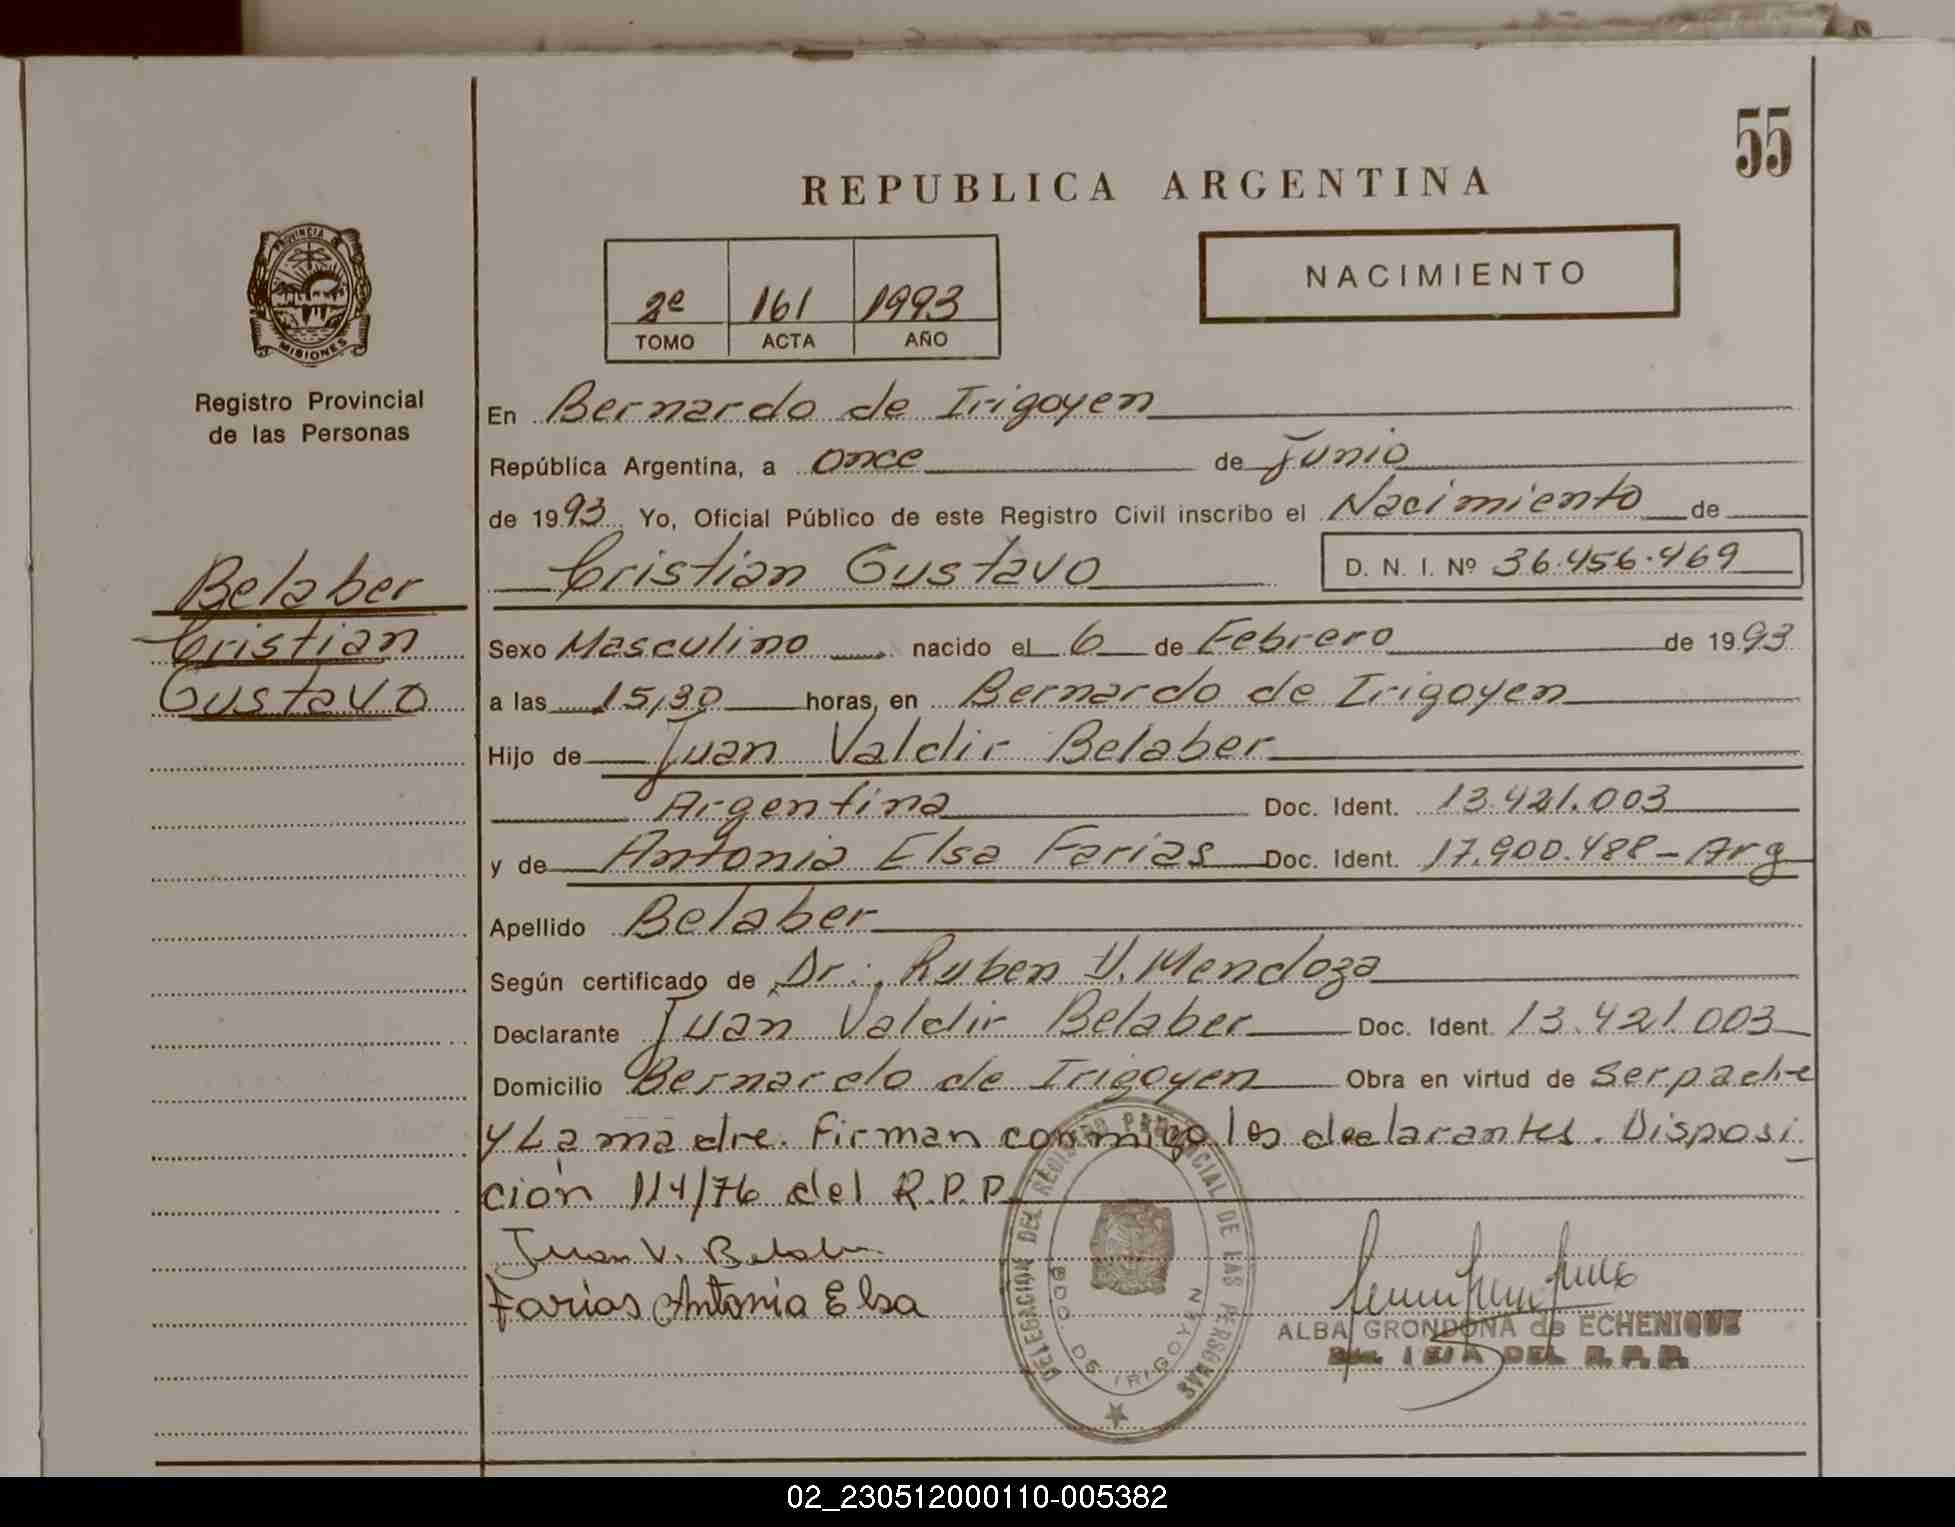 55
REPUBLICA ARGENTINA
PROVINCIA DE
MISIONES
Registro Provincial
de las Personas
2º 161 1993
TOMO ACTA AÑO
NACIMIENTO
En Bernardo de Irigoyen
República Argentina, a once de Junio
de 1993 Yo, Oficial Público de este Registro Civil inscribo el Nacimiento de
Cristian Gustavo D. N. I. Nº 36.456.469
Belaber
Cristian
Gustavo
Sexo Masculino nacido el 6 de Febrero de 1993
a las 15,30 horas, en Bernardo de Irigoyen
Hijo de Juan Valdir Belaber
Argentina Doc. Ident. 13.421.003
y de Antonia Elsa Farias Doc. Ident. 17.900.488-Arg
Apellido Belaber
Según certificado de Dr.: Ruben V. Mendoza
Declarante Juan Valdir Belaber Doc. Ident. 13.421.003
Domicilio Bernardo de Irigoyen Obra en virtud de ser padre
y La madre. Firman conmigo los declarantes. Disposi
ción 114/76 del R.P.P
Juan V. Belaber
Farias Antonia Elsa
DELEGACION DEL REGISTRO PROVINCIAL DE LAS PERSONAS
BDO DE IRIGOYEN
ALBA GRONDONA de ECHENIQUE
DEL R.P.P.
02_230512000110-005382